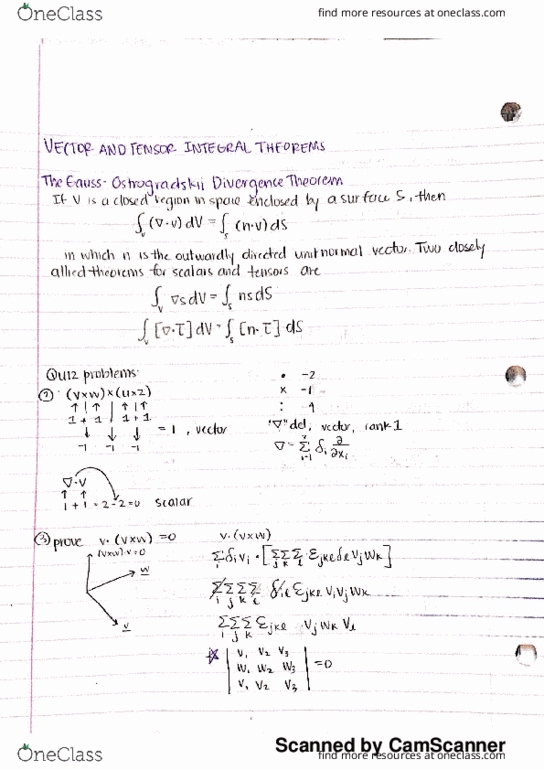 OneClass
find more resources at oneclass.com
VECTOR AND TENSOR INTEGRAL THEOREMS
The Gauss-Ostrogradskii Divergence Theorem
If V is a closed region in space enclosed by a surface S, then
∫v (∇·v) dV = ∫s (n·v) dS
in which n is the outwardly directed unit normal vector. Two closely
allied theorems for scalars and tensors are
∫v ∇s dV = ∫s ns dS
∫v [∇·τ] dV = ∫s [n·τ] dS
Quiz problems:
(v×w)×(u×z)
↑ | ↑ | ↑ | ↑
1 + 1 | 1 + 1
↓ ↓ ↓
-1 -1 -1
= 1, vector
• -2
× -1
:
"∇" del, vector, rank 1
∇ = Σ δi ∂/∂xi
∇·v
↑ ↑
1 + 1 = 2-2=0 scalar
③ prove v·(v×w) = 0
(v×w)·v=0
w
v
v·(v×w)
Σi δi vi · [Σj Σk Σl εjkl δl vj wk]
Σi Σj Σk Σl δil εjkl vi vj wk
Σi Σj Σk εjkl vj wk vl
| v1 v2 v3 |
| w1 w2 w3 | = 0
| v1 v2 v3 |
Scanned by CamScanner
OneClass
find more resources at oneclass.com